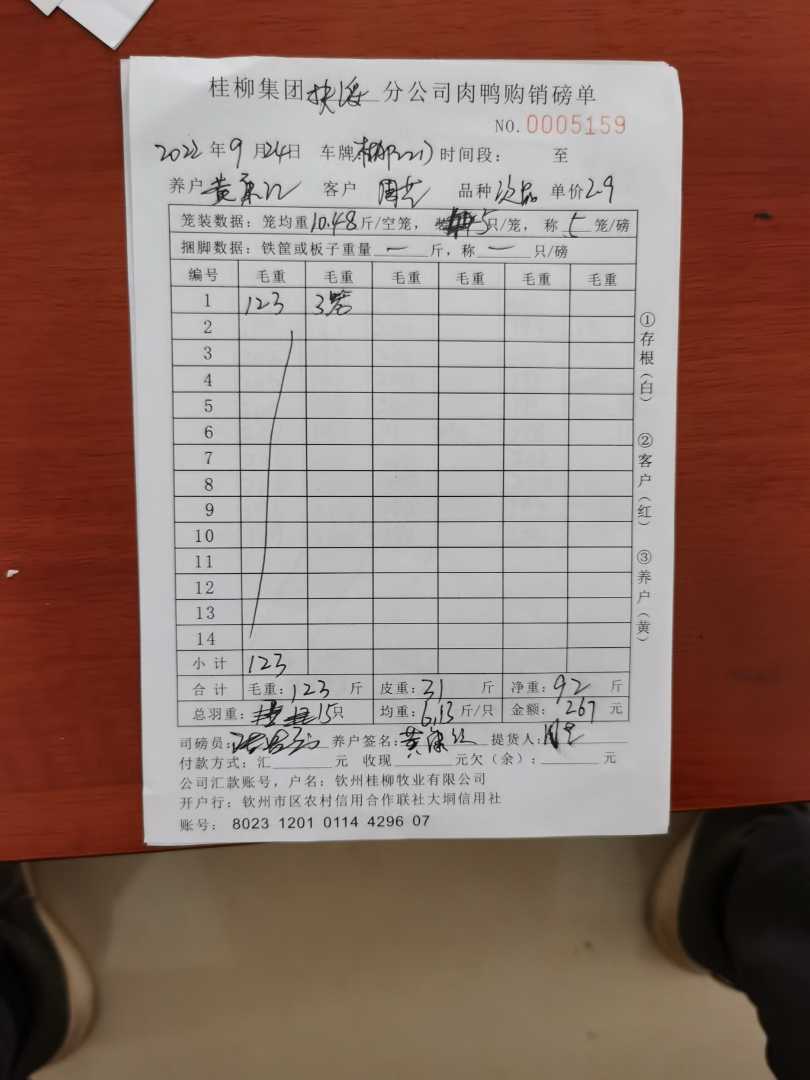 桂柳集团扶绥分公司肉鸭购销磅单
NO.0005159
2022年9月24日 车牌 时间段： 至
养户 黄 客户 周 品种次品 单价2.9
笼装数据：笼均重10.48斤/空笼， 装5只/笼， 称5笼/磅
捆脚数据：铁筐或板子重量一斤，称一只/磅
编号 毛重 毛重 毛重 毛重 毛重 毛重
1 123 3笼
2
3
4
5
6
7
8
9
10
11
12
13
14
小计 123
合计 毛重：123斤 皮重：31斤 净重：92斤
总羽重：15只 均重：6.13斤/只 金额：267元
司磅员： 养户签名：黄 提货人：
付款方式：汇 元 收现 元欠（余）： 元
公司汇款账号，户名：钦州桂柳牧业有限公司
开户行：钦州市区农村信用合作联社大垌信用社
账号： 8023 1201 0114 4296 07
①存根（白）
②客户（红）
③养户（黄）